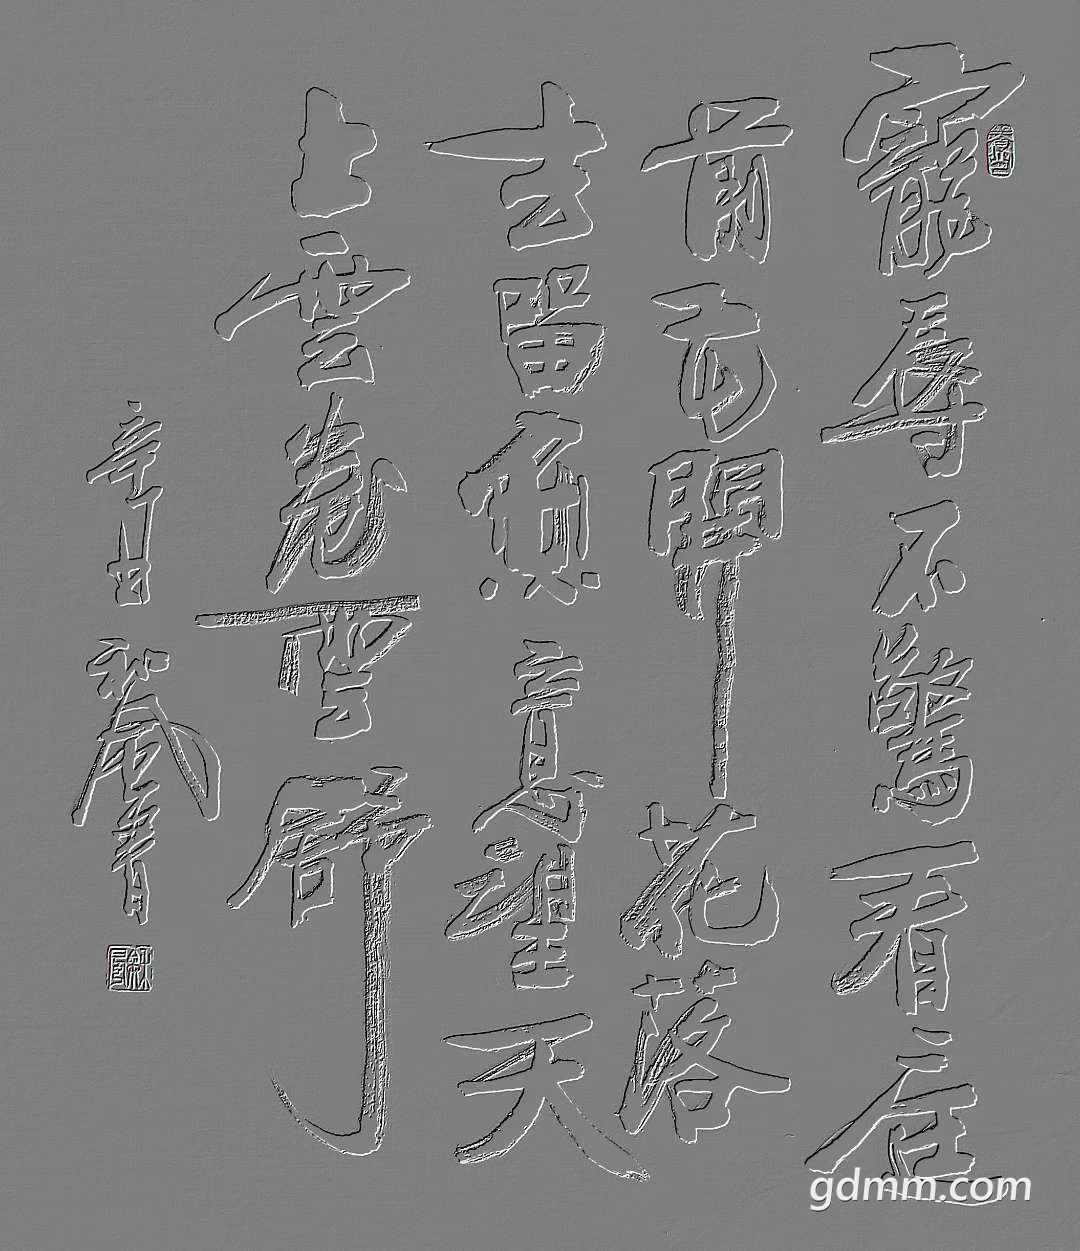 寵辱不驚看庭
前花開花落
去留無意望天
上雲卷雲舒
辛丑
gdmm.com